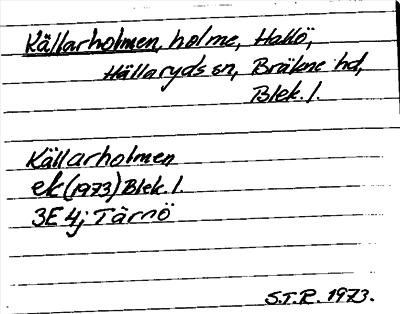 Källarholmen, holme, Hallö,
Hällaryds sn, Bräkne hd,
Blek. l.
Källarholmen
ek (1973) Blek. l.
3E 4j Tärnö
S.T.R. 1973.